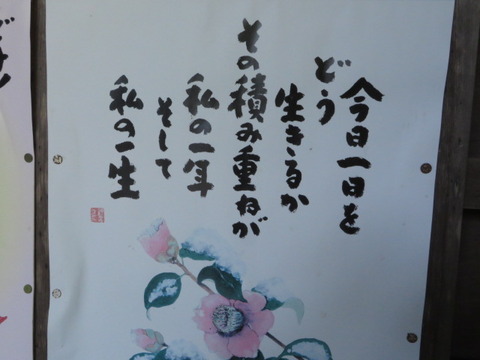 今日一日を
どう
生きるか
その積み重ねが
私の一年
そして
私の一生